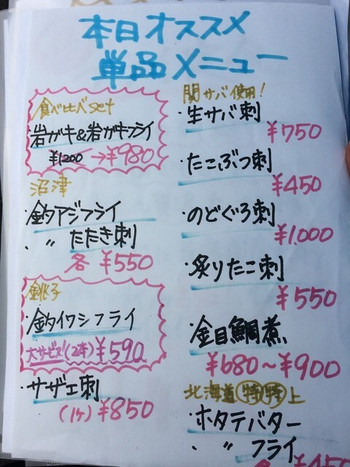 本日オススメ
単品メニュー
食べ比べset
岩ガキ&岩ガキフライ
¥1200→¥980
沼津
・釣アジフライ
・〃 たたき刺
各 ¥550
銚子
・釣イワシフライ
大サービス!(2本) ¥590
・サザエ刺
(1ケ) ¥850
関サバ使用!
・生サバ刺
¥750
・たこぶつ刺
¥450
・のどぐろ刺
¥1,000
・炙りたこ刺
¥550
・金目鯛煮
¥680〜¥900
北海道 特特上
・ホタテバター
・〃 フライ
¥450